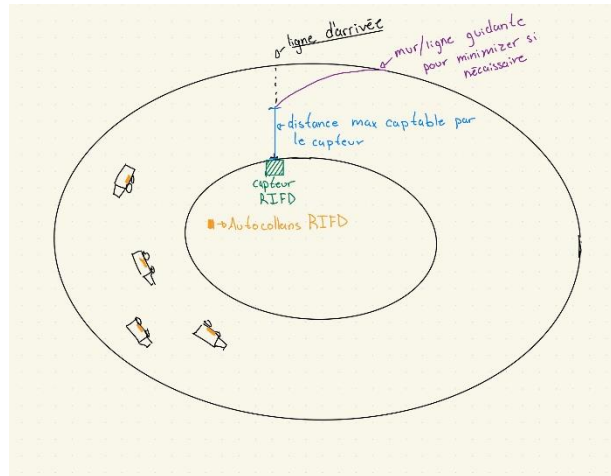 ligne d'arrivée
mur/ligne guidante
pour minimizer si
nécaissaire
distance max captable par
le capteur
capteur
RIFD
Autocollans RIFD